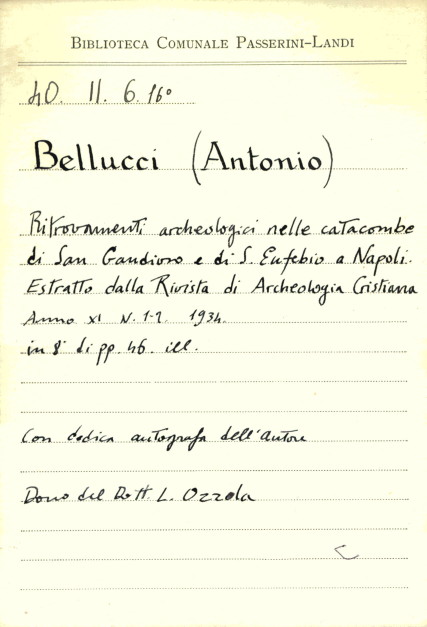 BIBLIOTECA COMUNALE PASSERINI-LANDI
40. II. 6. 16°
Bellucci (Antonio)
Ritrovamenti archeologici nelle catacombe
di San Gaudioso e di S. Eufebio a Napoli.
Estratto dalla Rivista di Archeologia Cristiana
Anno XI N. 1-2. 1934.
in 8° di pp. 46. ill.
Con dedica autografa dell'Autore
Dono del Dott. L. Ozzola